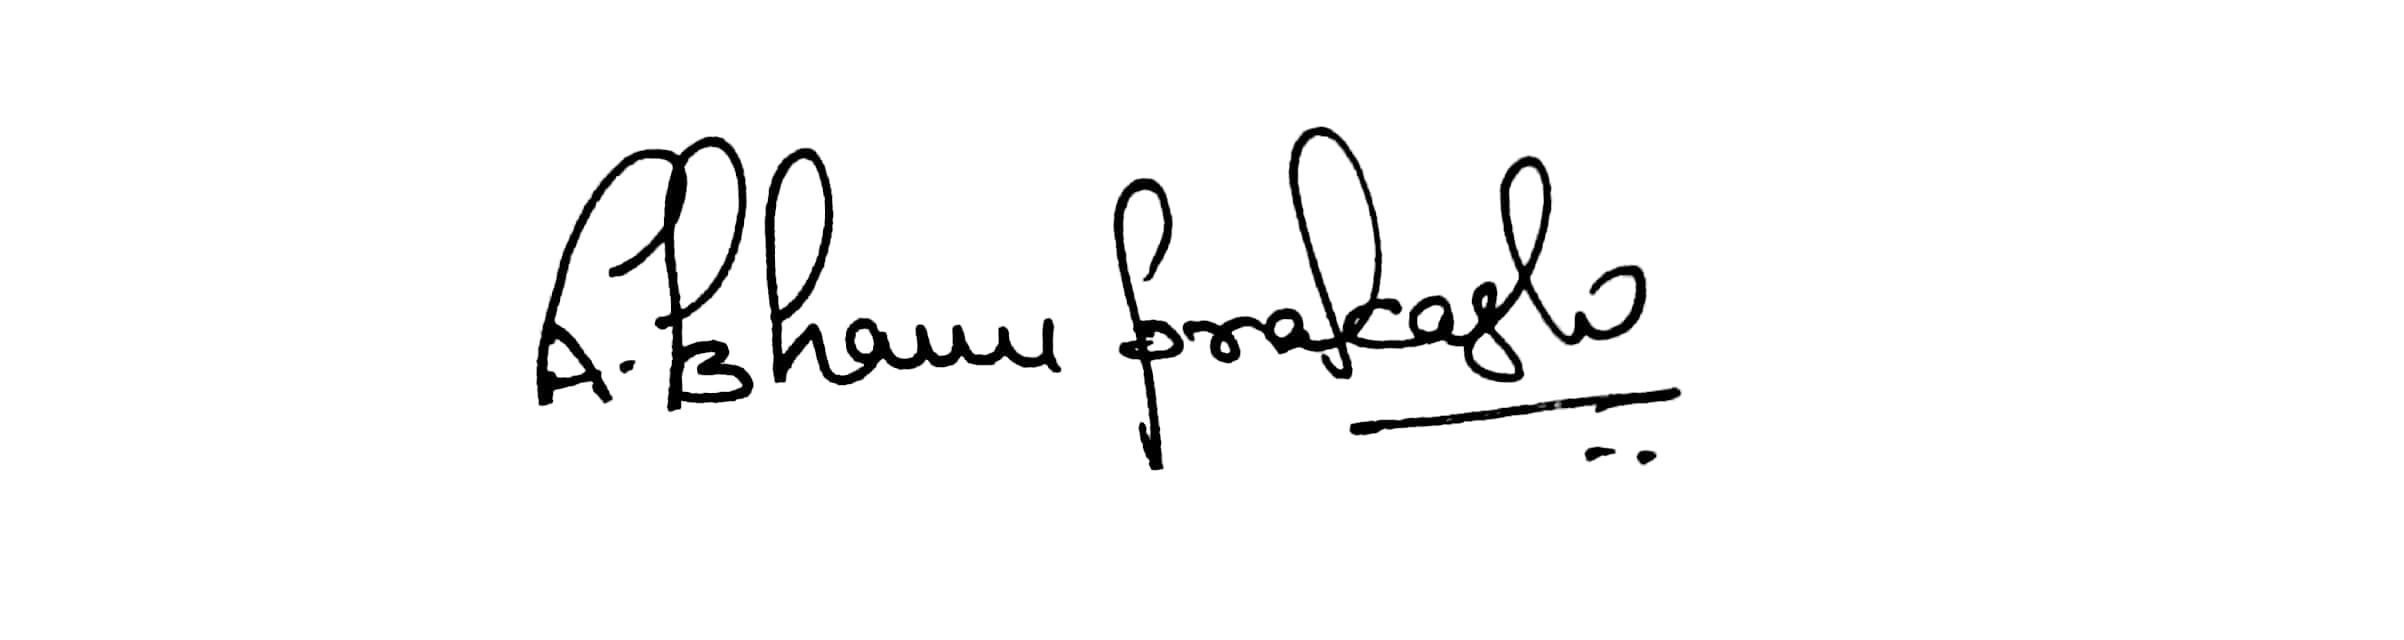 A. Bhanu Prakash